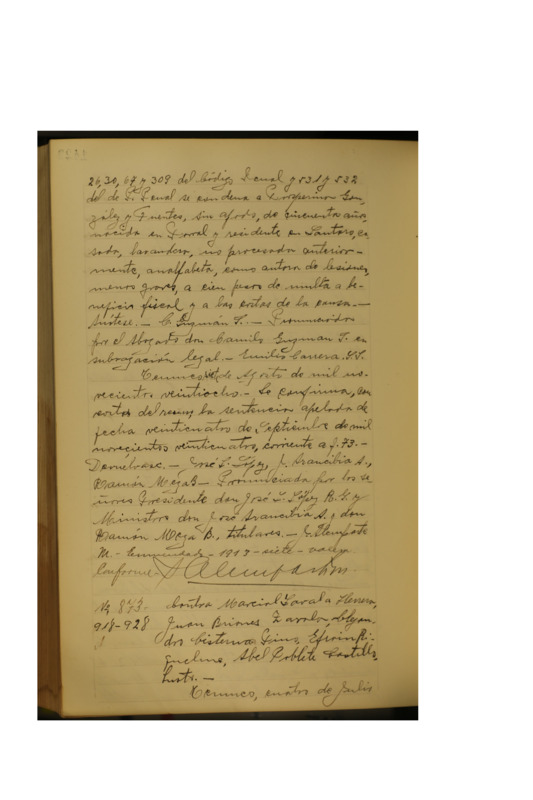 26, 30, 69 y 309 del Código Penal y 531 y 532
del de P. Penal se condena a Prosperina Gon-
zález y Fuentes, sin apodo, de cincuenta años
nacida en Parral y residente en Lautaro, ca-
sada, lavandera, no procesada anterior-
mente, analfabeta, como autora de lesiones
menos graves, a cien pesos de multa a be-
neficio fiscal y a las costas de la causa.—
Anótese.— C. Guzmán T.— Pronunciada
por el Abogado don Camilo Guzman T. en
subrogación legal.— Emilio Carrera. S.S.
Temuco, de Agosto de mil no-
vecientos veintiocho.— Se confirma, con
costas del recurso la sentencia apelada de
fecha veinticuatro de Septiembre de mil
novecientos veinticuatro, corriente a f. 73.—
Devuélvase.— José L. López, J. Arancibia A.,
Ramón Meza B.— Pronunciada por los se-
ñores Presidente don José L. López R. y
Ministros don José Arancibia A. y don
Ramón Meza B., titulares.—
M.— Enmendado — siete — vale
Conforme.—
No 873.- Contra Marcial Zavala Herrera,
918-928 Juan Briones Zavala,
Cisterna Efrain Ri-
quelme, Abel Poblete Castillo,
hurto.—
Temuco, cuatro de Julio